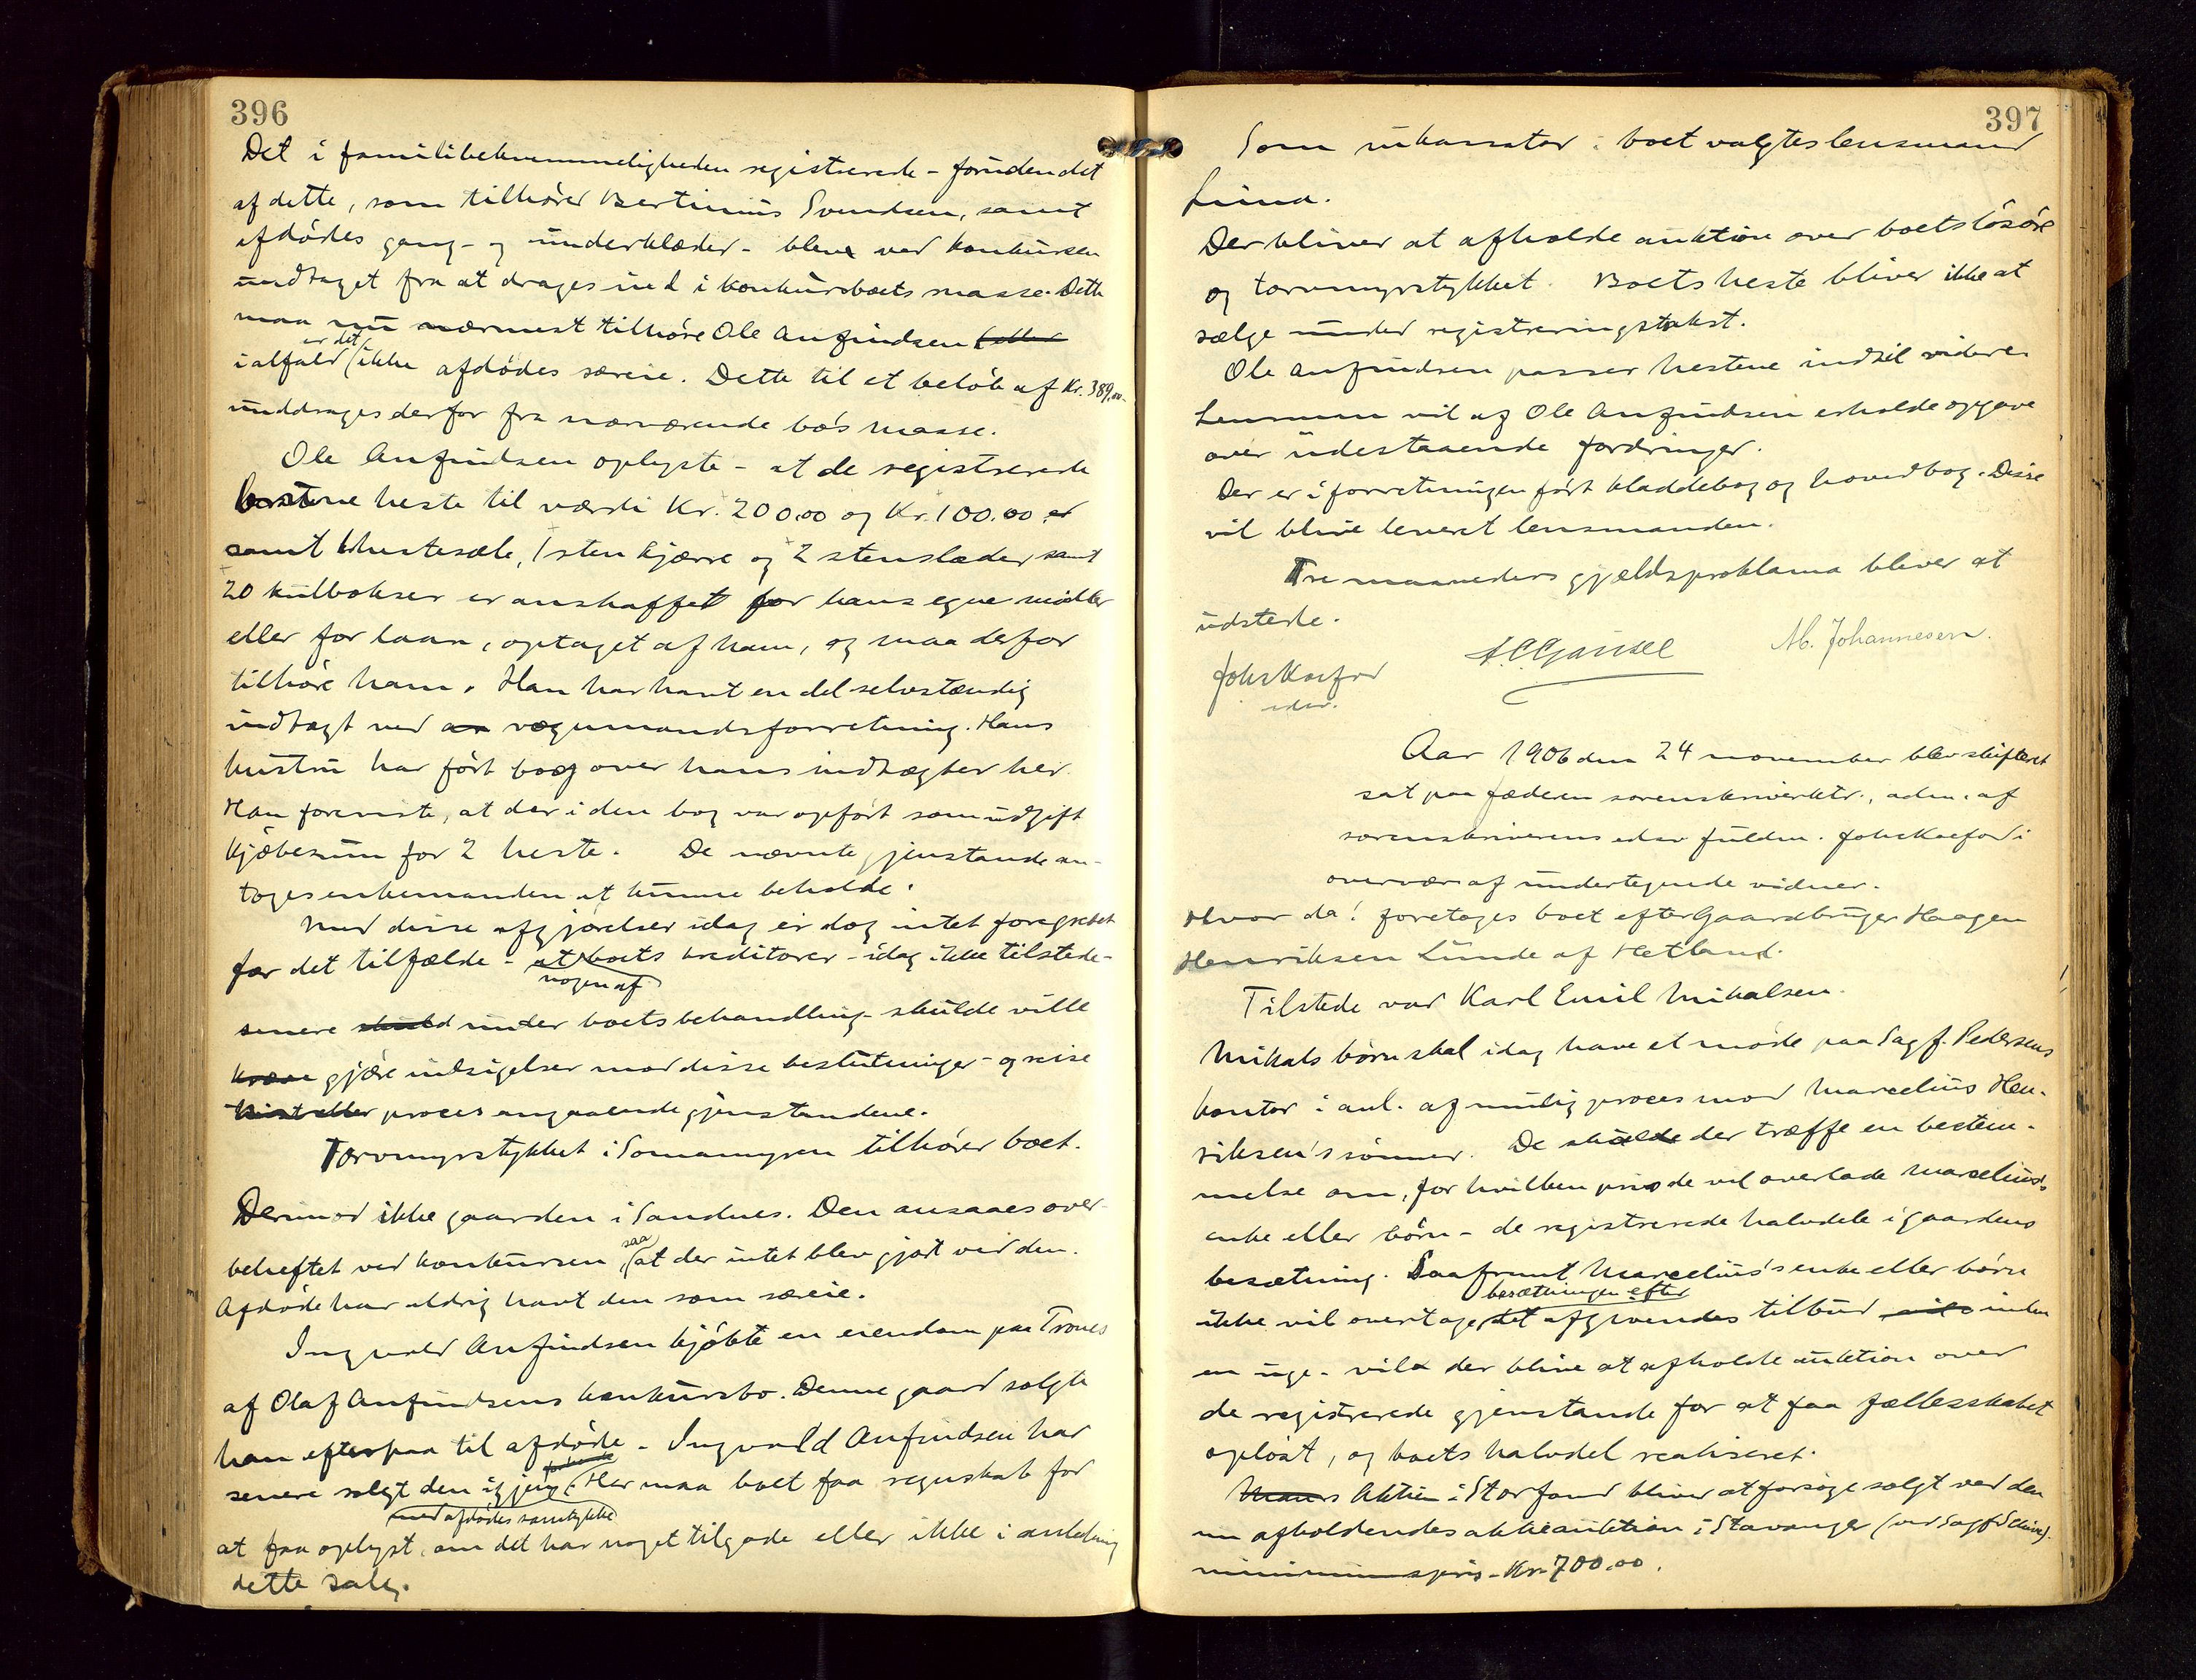 396
Det i familibekvemmeligheden registrerede - foruden det
af dette, som tilhører Bertinius Svendsen, samt
afdødes gang- og underklæder - blev ved konkursen
undtaget fra at drages ind i konkursboets masse. Dette
maa nu nærmest tilhøre Ole Anfindsen
ialfald er det ikke afdødes særeie. Dette til et beløb af Kr. 389.00
unddrages derfor fra nærværende bo's masse.
Ole Anfindsen oplyste - at de registrerede
heste til værdi Kr. 200.00 og Kr. 100.00
samt hestesæle, 1 stenkjærre og 2 stenslæder samt
20 kulbokser er anskaffet for hans egne midler
eller for laan, optaget af ham, og maa derfor
tilhøre ham. Han har havt en del selvstændig
indtægt ved vognmandsforretning. Hans
hustru har ført bog over hans indtægter her.
Han foreviste, at der i den bog var opført som udgift
kjøbesum for 2 heste. De nævnte gjenstande an-
toges enkemanden at kunne beholde.
Med disse afgjørelser idag er dog intet foregrebet
for det tilfælde - at nogen af boets kreditorer - idag ikke tilstede -
senere under boets behandling - skulde ville
gjøre indsigelser mod disse beslutninger - og reise
proces angaaende gjenstandene.
Torvmyrstykket i Somamyren tilhører boet.
Derimod ikke gaarden i Sandnes. Den ansaaes over-
beheftet ved konkursen, saa at der intet blev gjort ved den.
Afdøde har aldrig havt den som særeie.
Ingvald Anfindsen kjøbte en eiendom paa Trones
af Olaf Anfindsens konkursbo. Denne gaard solgte
han efterpaa til afdøde - Ingvald Anfindsen har
senere solgt den igjen med afdødes samtykke. Her maa boet faa regnskab for
at faa oplyst, om det har noget tilgode eller ikke i anledning
dette salg.
397
Som inkassator i boet valgtes lensmand
Lima.
Der bliver at afholde auktion over boets løsøre
og torvmyrstykket. Boets heste bliver ikke at
sælge under registreringstakst.
Ole Anfindsen passer hestene indtil videre.
Lensmm vil af Ole Anfindsen erholde opgave
over udestaaende fordringer.
Der er i forretningen ført kladdebog og hovedbog. Disse
vil blive leveret lensmanden.
Tre maaneders gjældsproklama bliver at
udstede.
Joh Korfor
edsv.
A. C. Gausel
M. Johannesen.
Aar 1906 den 24 november blev skifteret
sat paa Jæderen sorenskriverktr., adm. af
sorenskriverens edsv fuldm. Joh Korfor i
overvær af undertegnede vidner.
Hvor da! foretages boet efter Gaardbruger Haagen
Henriksen Lunde af Hetland.
Tilstede var Karl Emil Mikalsen.
Mikals børn skal idag have et møde paa Sagf. Pedersens
kontor i anl. af mulig proces mod Marcelius Hen-
riksen's sønner. De skulde der træffe en bestem-
melse om, for hvilken pris de vil overlade Marcelius's
enke eller børn - de registrerede halvdele i gaardens
besætning. Saafremt Marcelius's enke eller børn
ikke vil overtage besætningen efter det afgivendes tilbud inden
en uge - vil der blive at afholde auktion over
de registrerede gjenstande for at faa fællesskabet
opløst, og boets halvdel realiseret.
Aktien i Storfond bliver at forsøge solgt ved den
nu afholdendes aktieauktion i Stavanger (ved Sagf Schiøtz).
minimumspris - Kr. 700.00.